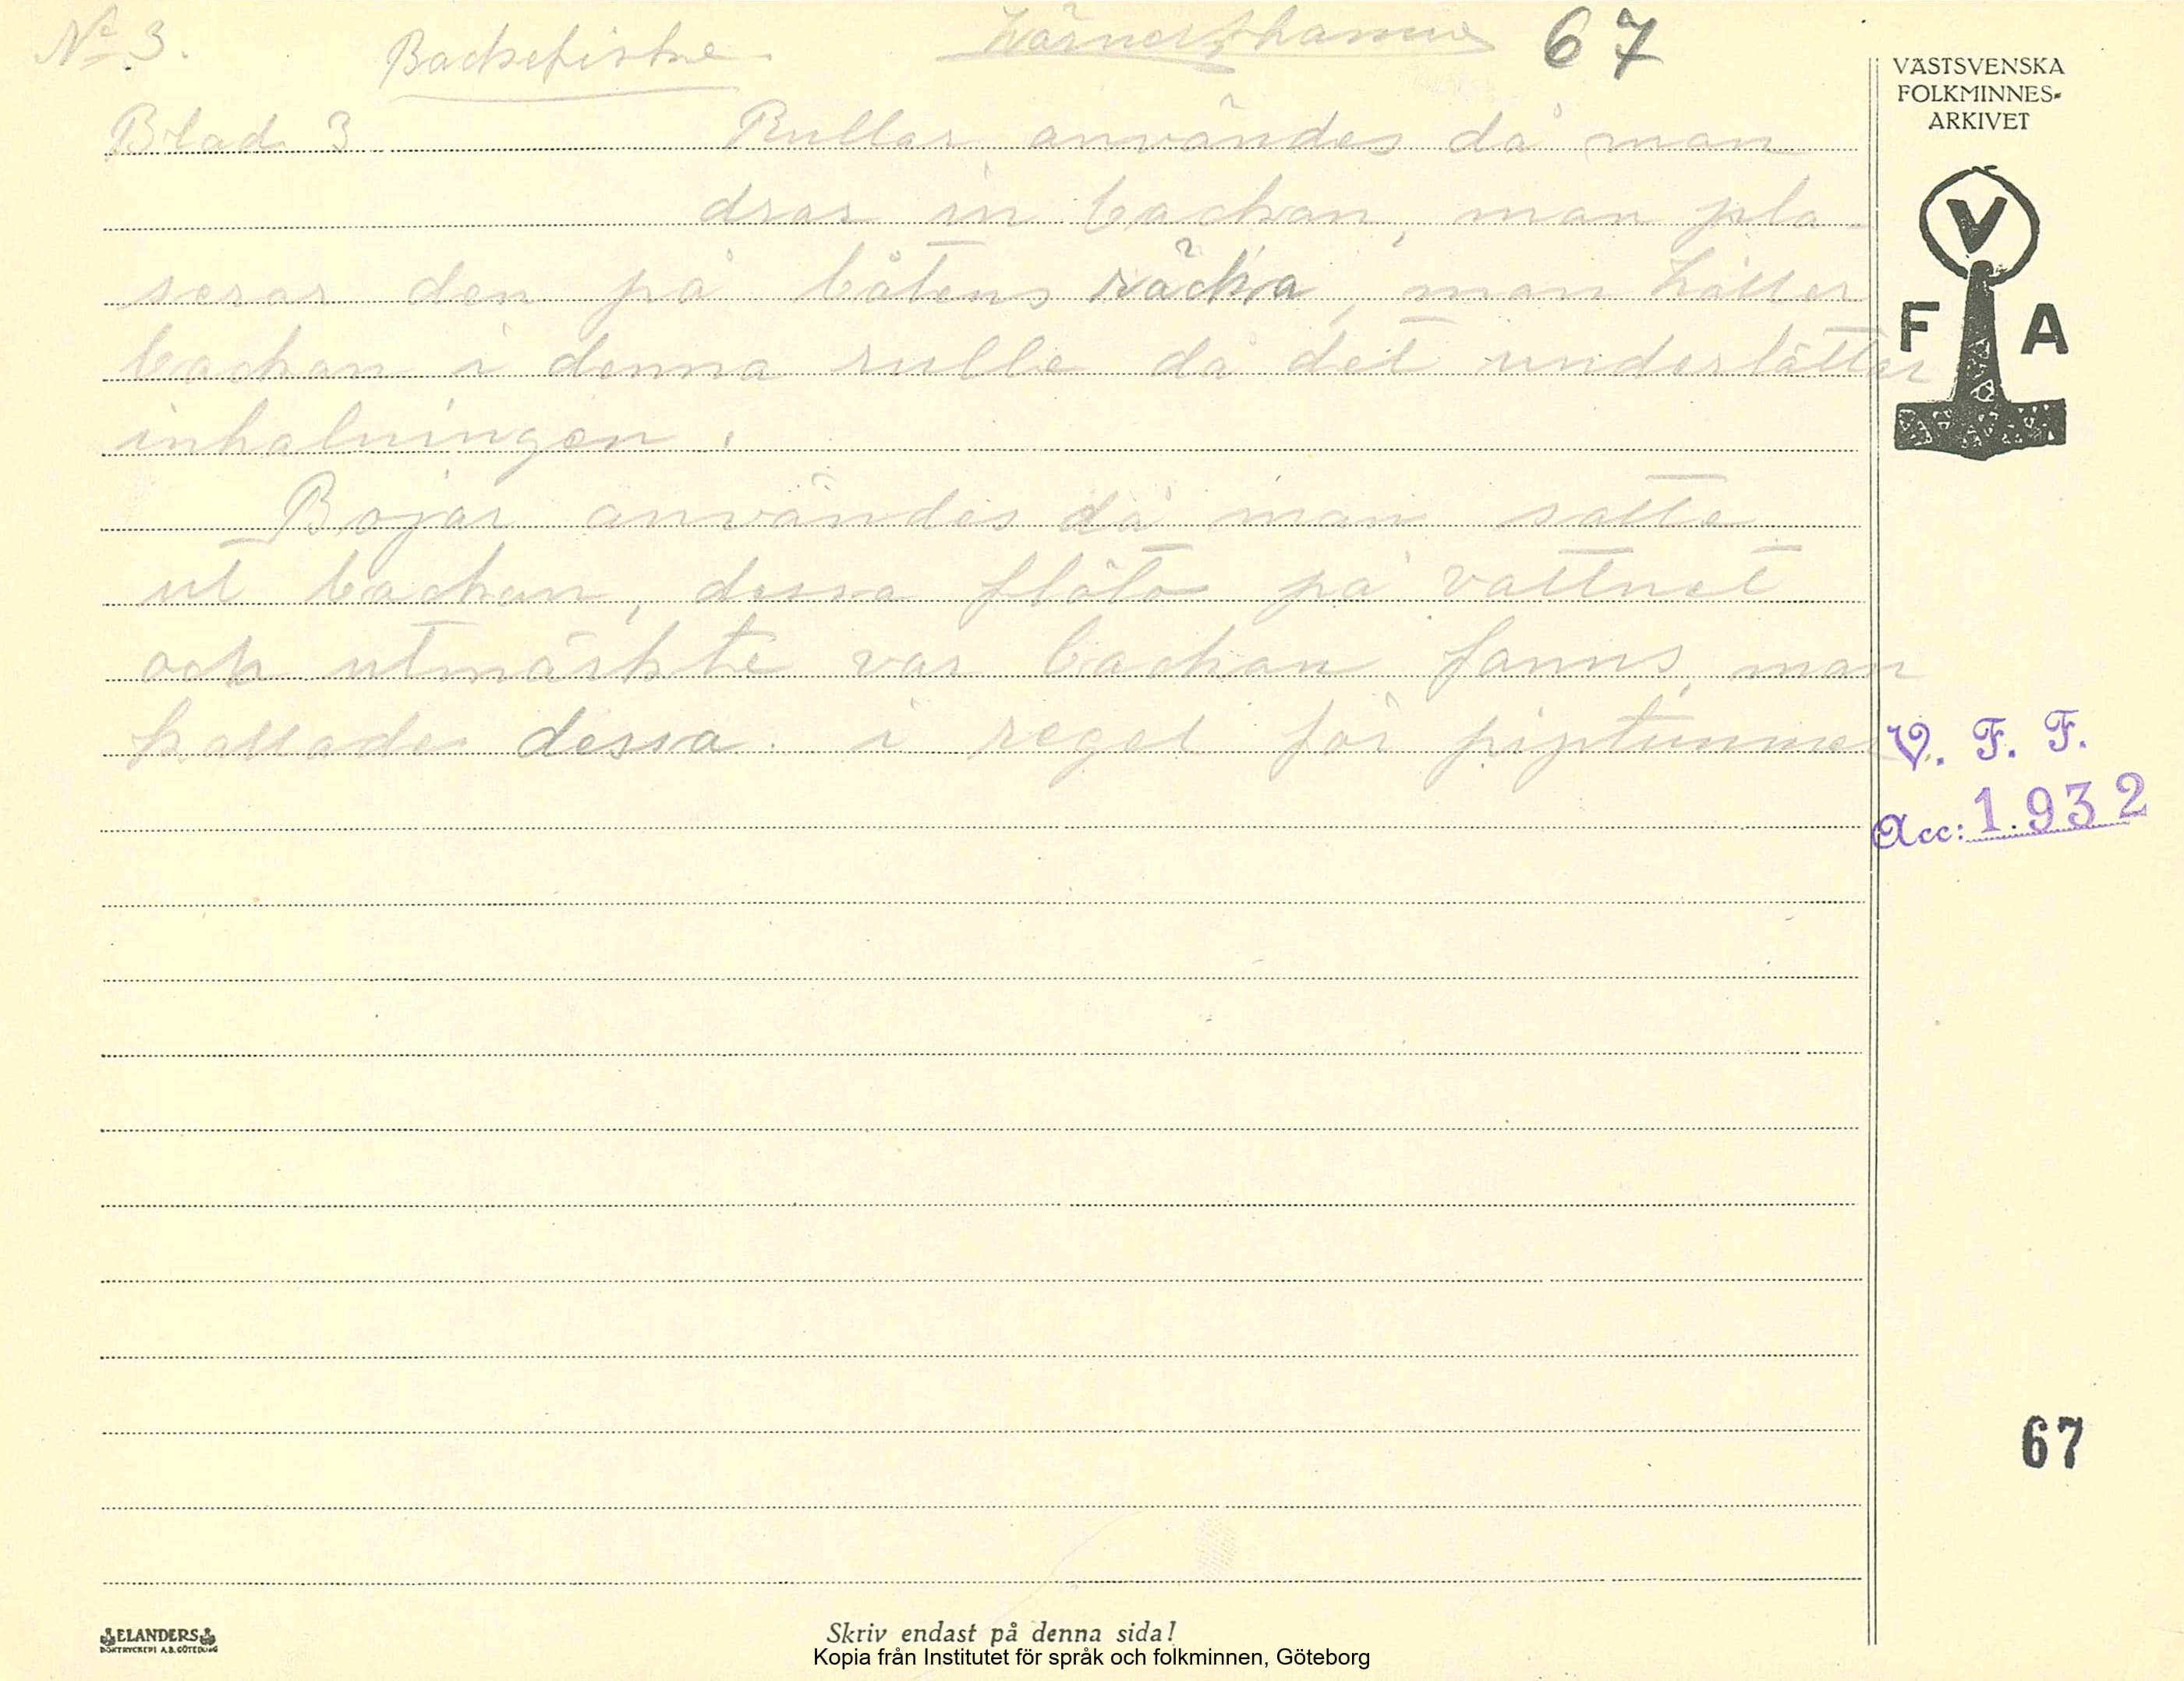 No 3. Backefiske. 67
Blad 3 Rullar användes då man
drar in backan, man pla-
serar den på båtens räcka, man håller
backan i denna rulle då det underlättar
inhalningen.
Bojar användes då man satte
ut backan, dessa flöto på vattnet
och utmärkte var backan fanns, man
kallade dessa. i regel för piptunnor
VÄSTSVENSKA
FOLKMINNES-
ARKIVET
V
F A
V. F. F.
Acc: 1932
67
ELANDERS
BOKTRYCKERI A.B. GÖTEBORG
Skriv endast på denna sida!
Kopia från Institutet för språk och folkminnen, Göteborg